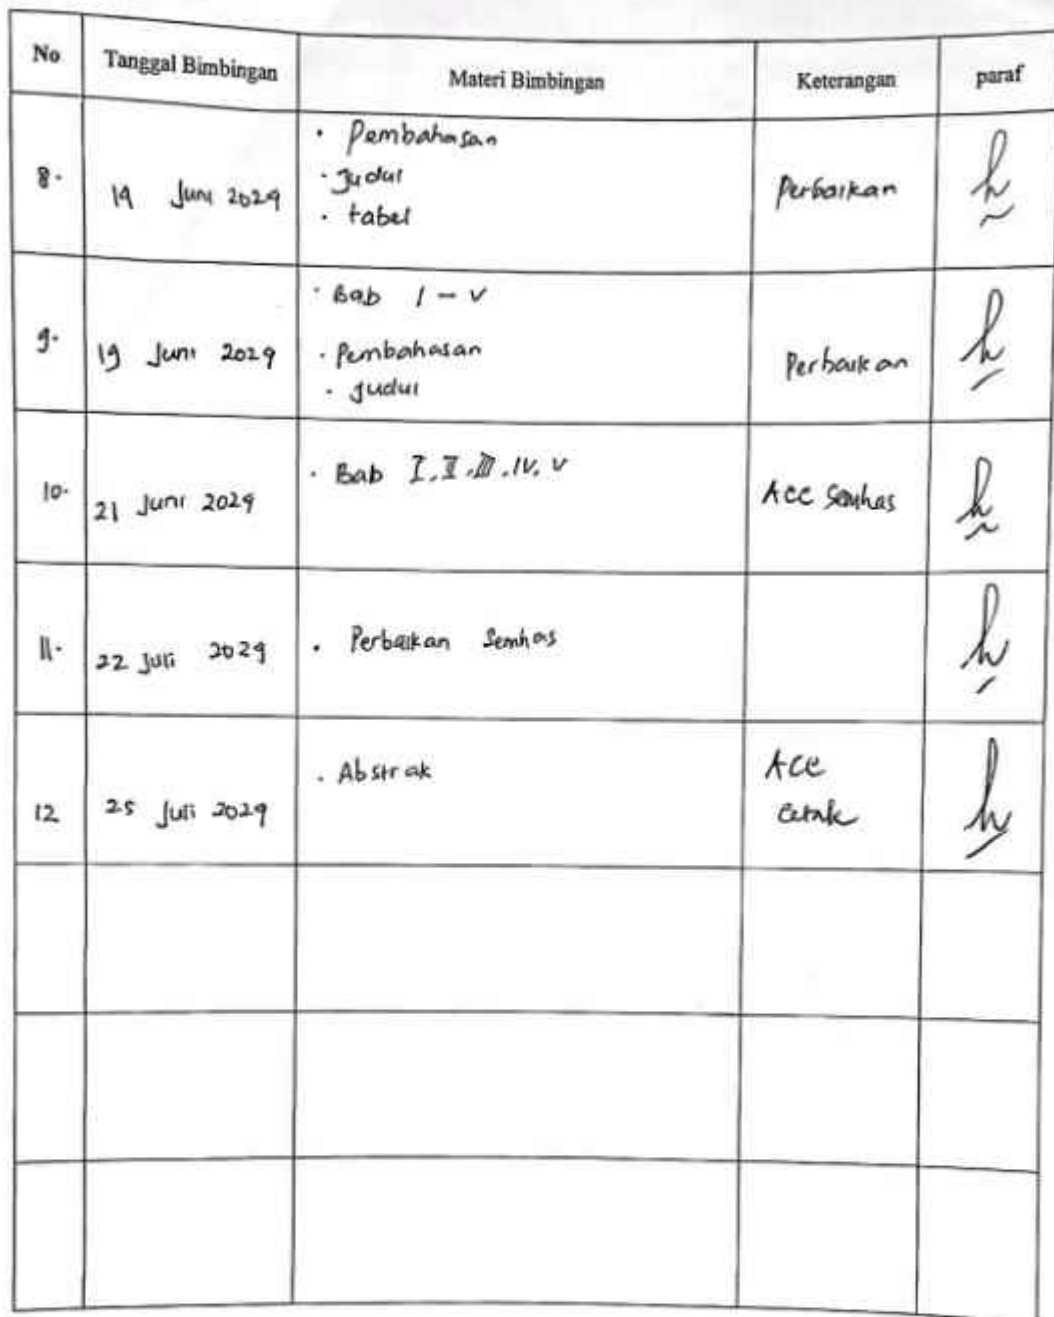 No Tanggal Bimbingan Materi Bimbingan Keterangan paraf
8. 14 Juni 2024 · Pembahasan Perbaikan
· Judul
· tabel
9. 19 Juni 2024 · Bab I - V Perbaikan
· Pembahasan
· Judul
10. 21 Juni 2024 · Bab I, II, III, IV, V ACC Semhas
11. 22 Juli 2024 · Perbaikan Semhas
12 25 Juli 2024 · Abstrak ACC
Cetak